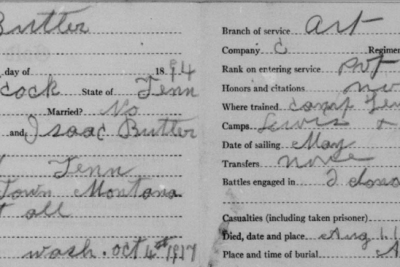 Butler
day of 1894
cock State of Tenn
Married? No
and Isaac Butler
Tenn
Town Montana
at all
Wash. Oct 4th 1917
Branch of service Art
Company C Regimen
Rank on entering service Pvt
Honors and citations
Where trained Camp Lew
Camps Lewis
Date of sailing May
Transfers none
Battles engaged in
Casualties (including taken prisoner)
Died, date and place Aug 11
Place and time of burial